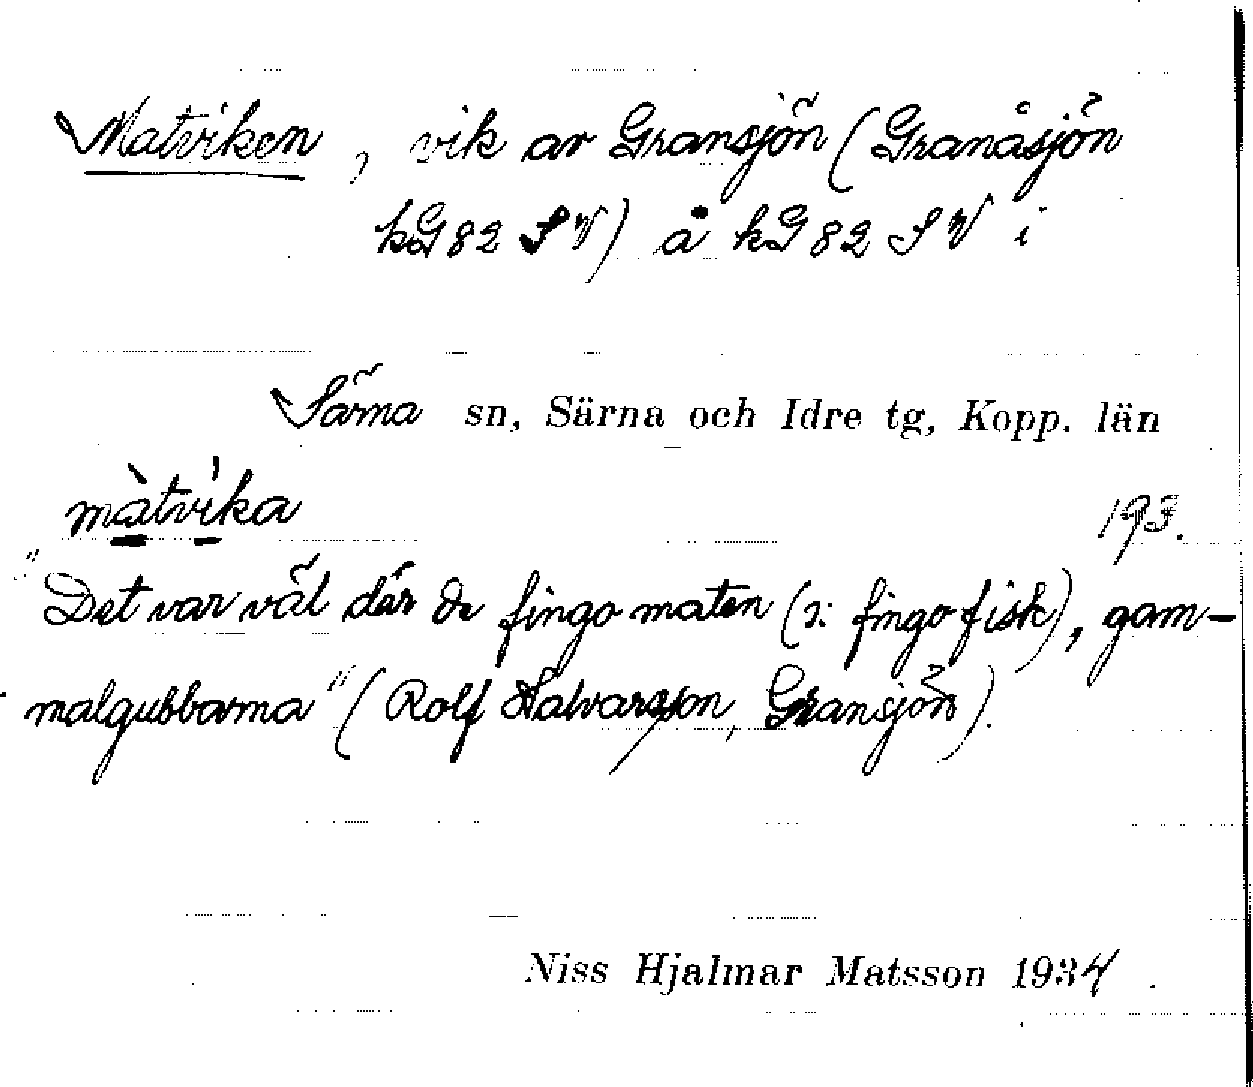 Matviken, vik av Gransjön (Granåsjön
kG 82 SV) å kG 82 SV i
Särna sn, Särna och Idre tg, Kopp. län
màtvìka 193.
"Det var väl där de fingo maten (ɔ: fingo fisk), gam-
malgubbarna" (Rolf Halvarsson, Gransjön).
Niss Hjalmar Matsson 1934.